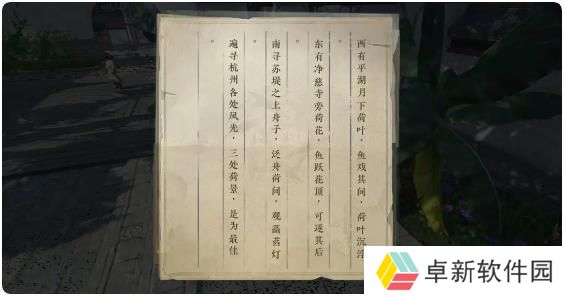 西有平湖月下荷叶,鱼戏其间,荷叶沉浮
东有净慈寺旁荷花,鱼跃花顶,可逐其后
南寻苏堤之上舟子,泛舟荷间,观菡萏灯
遍寻杭州各处风光,三处荷景,是为最佳
卓新软件园